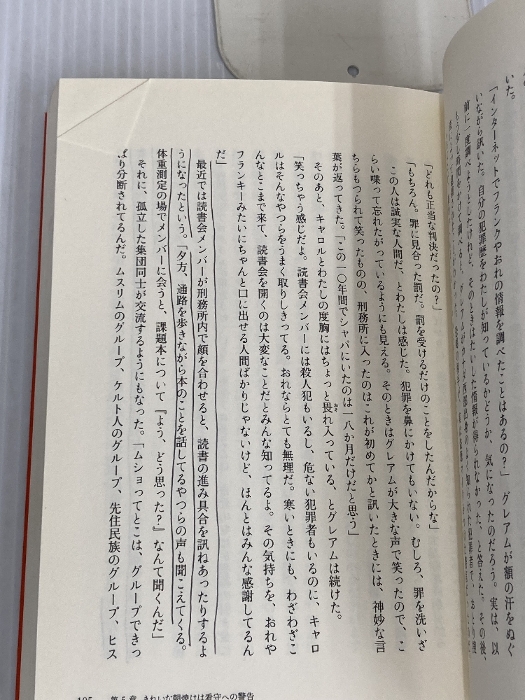 いた。
「インターネットでフランクやおれの情報を調べたことはあるの？」グレアムが額の汗をぬぐ
いながら訊いた。自分の犯罪歴をわたしが知っているかどうか、気になったのだろう。実は、以
前に一度調べようとしたけれど、そのときはたいした情報が得られなかった、と答えた。その後、
「どれも正当な判決だったの？」
「もちろん。罪に見合った罰だ。罰を受けるだけのことをしたんだからな」
この人は誠実な人間だ、とわたしは感じた。犯罪を鼻にかけてもいない。むしろ、罪を洗いざ
らい喋って忘れたがっているようにも見える。そのときはグレアムが大きな声で笑ったので、こ
ちらもつられて笑ったものの、刑務所に入ったのはこれが初めてかと訊いたときには、神妙な言
葉が返ってきた。「この一〇年間でシャバにいたのは一八か月だけだと思う」
そのあと、キャロルとわたしの度胸にはちょっと畏れ入っている、とグレアムは続けた。
「笑っちゃう感じだよ。読書会メンバーには殺人犯もいるし、危ない犯罪者もいるのに、キャロ
ルはそんなやつらをうまく取りしきってる。おれならとても無理だ。寒いときにも、わざわざこ
んなとこまで来て、読書会を開くのは大変なことだとみんな知ってるよ。その気持ちを、おれや
フランキーみたいにちゃんと口に出せる人間ばかりじゃないけど、ほんとはみんな感謝してるん
だ」
最近では読書会メンバーが刑務所内で顔を合わせると、読書の進み具合を訊ねあったりするよ
うになったという。「夕方、通路を歩きながら本のことを話してるやつらの声も聞こえてくる。
体重測定の場でメンバーに会うと、課題本について『よう、どう思った？』なんて聞くんだ」
それに、孤立した集団同士が交流するようにもなった。「ムショってとこは、グループできっ
ぱり分断されてるんだ。ムスリムのグループ、ケルト人のグループ、先住民族のグループ、ヒス
105 第5章 きれいな朝焼けは看守への警告